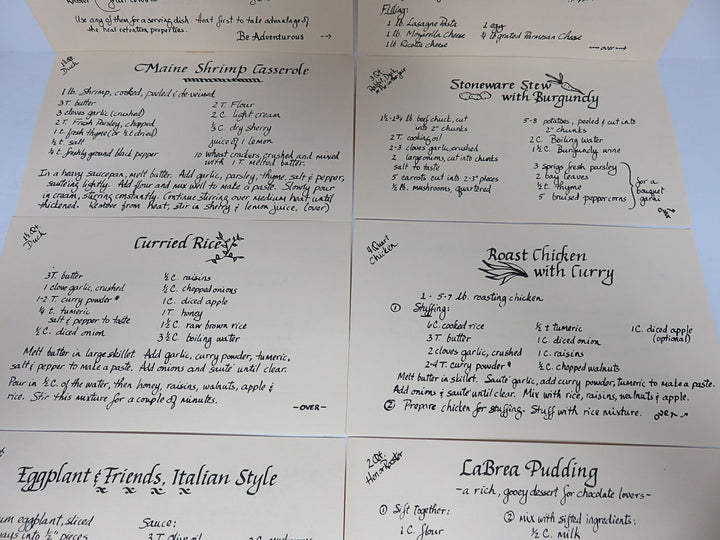 Use any of them for a serving dish. Heat first to take advantage of
the heat retention properties.
Be Adventurous -->
Filling:
1 lb. Lasagne Pasta
1 lb. Mozarella Cheese
1 lb. Ricotta cheese
1 egg
4 lb grated Parmesan Cheese
-over->
Duck
Maine Shrimp Casserole
1 lb. Shrimp, cooked, peeled & deveined
3 T. butter
3 cloves garlic (crushed)
2 T. Fresh Parsley, chopped
1 t. fresh thyme (or ½ t dried)
½ t. salt
¼ t. freshly ground black pepper
2 T. Flour
2 C. light cream
⅓ C. dry sherry
juice of 1 lemon
10 wheat crackers, crushed and mixed
with 1 T. melted butter.
In a heavy saucepan, melt butter. Add garlic, parsley, thyme, salt & pepper,
sauteing lightly. Add flour and mix well to make a paste. Slowly pour
in cream, stirring constantly. Continue stirring over medium heat until
thickened. Remove from heat, stir in sherry & lemon juice. (over)
Stoneware Stew
with Burgundy
1½-1¾ lb. beef chuck, cut
into 2" chunks
2 T. cooking oil
2-3 cloves garlic, crushed
2 large onions, cut into chunks
salt to taste
5 carrots cut into 2-3" pieces
½ lb. mushrooms, quartered
5-8 potatoes, peeled & cut into
2" chunks
2 C. Boiling water
1½ C. Burgundy wine
3 sprigs fresh parsley
2 bay leaves
½ t. thyme
5 bruised peppercorns
for a
bouquet
garni
over
1½ Qt.
Duck
Curried Rice
3 T. butter
1 clove garlic, crushed
1-2 T. curry powder *
¼ t. tumeric
salt & pepper to taste
½ C. diced onion
½ C. raisins
½ C. chopped onions
1 C. diced apple
1 T. honey
1½ C. raw brown rice
3½ C. boiling water
Melt butter in large skillet. Add garlic, curry powder, tumeric,
salt & pepper to make a paste. Add onions and sauté until clear.
Pour in ½ C. of the water, then honey, raisins, walnuts, apple &
rice. Stir this mixture for a couple of minutes.
-OVER-
4 Quart
Chicken
Roast Chicken
with Curry
1 - 5-7 lb. roasting chicken
① Stuffing:
6 C. cooked rice
3 T. butter
2 cloves garlic, crushed
2-4 T. curry powder *
½ t tumeric
1 C. diced onion
1 C. raisins
½ C. chopped walnuts
1 C. diced apple
(optional)
Melt butter in skillet. Sauté garlic, add curry powder, tumeric to make a paste.
Add onions & saute until clear. Mix with rice, raisins, walnuts & apple.
② Prepare chicken for stuffing. Stuff with rice mixture. over ->
Eggplant & Friends, Italian Style
eggplant, sliced
into ½" pieces
Sauce:
3 T. olive oil
2 Qt.
Hen or Rooster
LaBrea Pudding
~ a rich, gooey dessert for chocolate lovers ~
① Sift Together:
1 C. flour
② mix with sifted ingredients:
½ C. milk